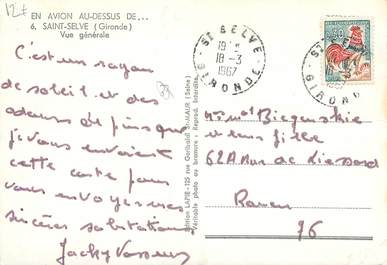 12f
EN AVION AU-DESSUS DE...
6. SAINT-SELVE (Gironde)
Vue générale
C'est un rayon
de soleil et des
odeurs de pins que
je vous envoient
cette carte pour
vous envoyer mes
sincères salutations
Jacky Vasseur
Edition LAPIE-125 rue Garibaldi St-MAUR (Seine)
Véritable photo au bromure - Reprod. Interdite
ST SELVE
18-3
1967
GIRONDE
ST
GIRONDE
et leur fille
62A Rue de
Rouen
76